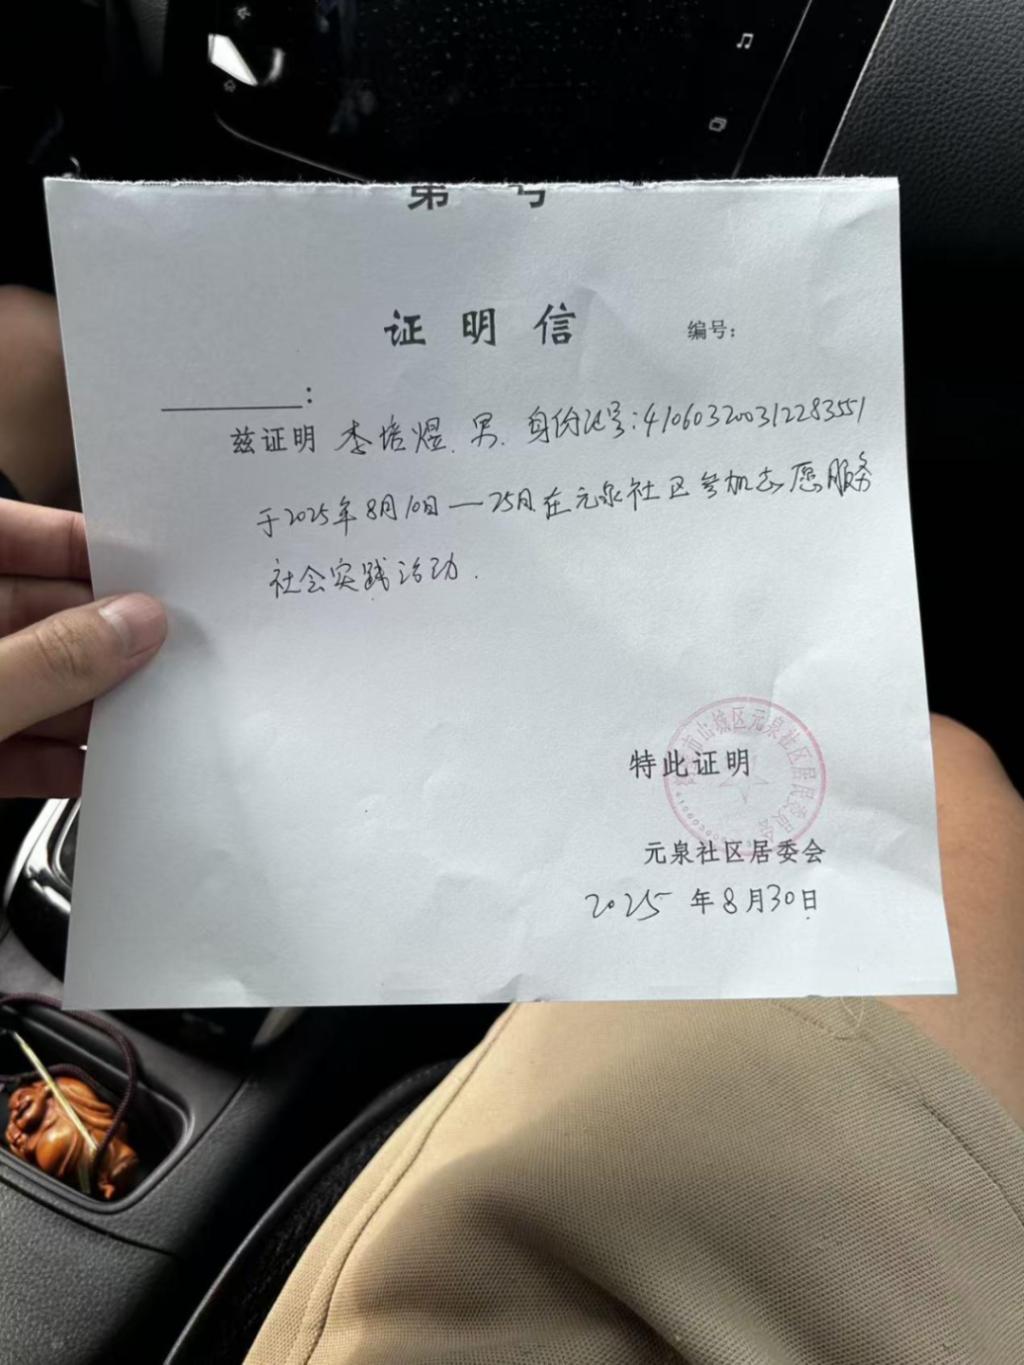 第 号
证 明 信 编号：
：
兹证明 李培煜. 男. 身份证号:410603200312283551
于2025年8月10日—25日在元泉社区参加志愿服务
社会实践活动.
市山城区元泉社区居民委员会
特此证明
元泉社区居委会
2025 年8月30日